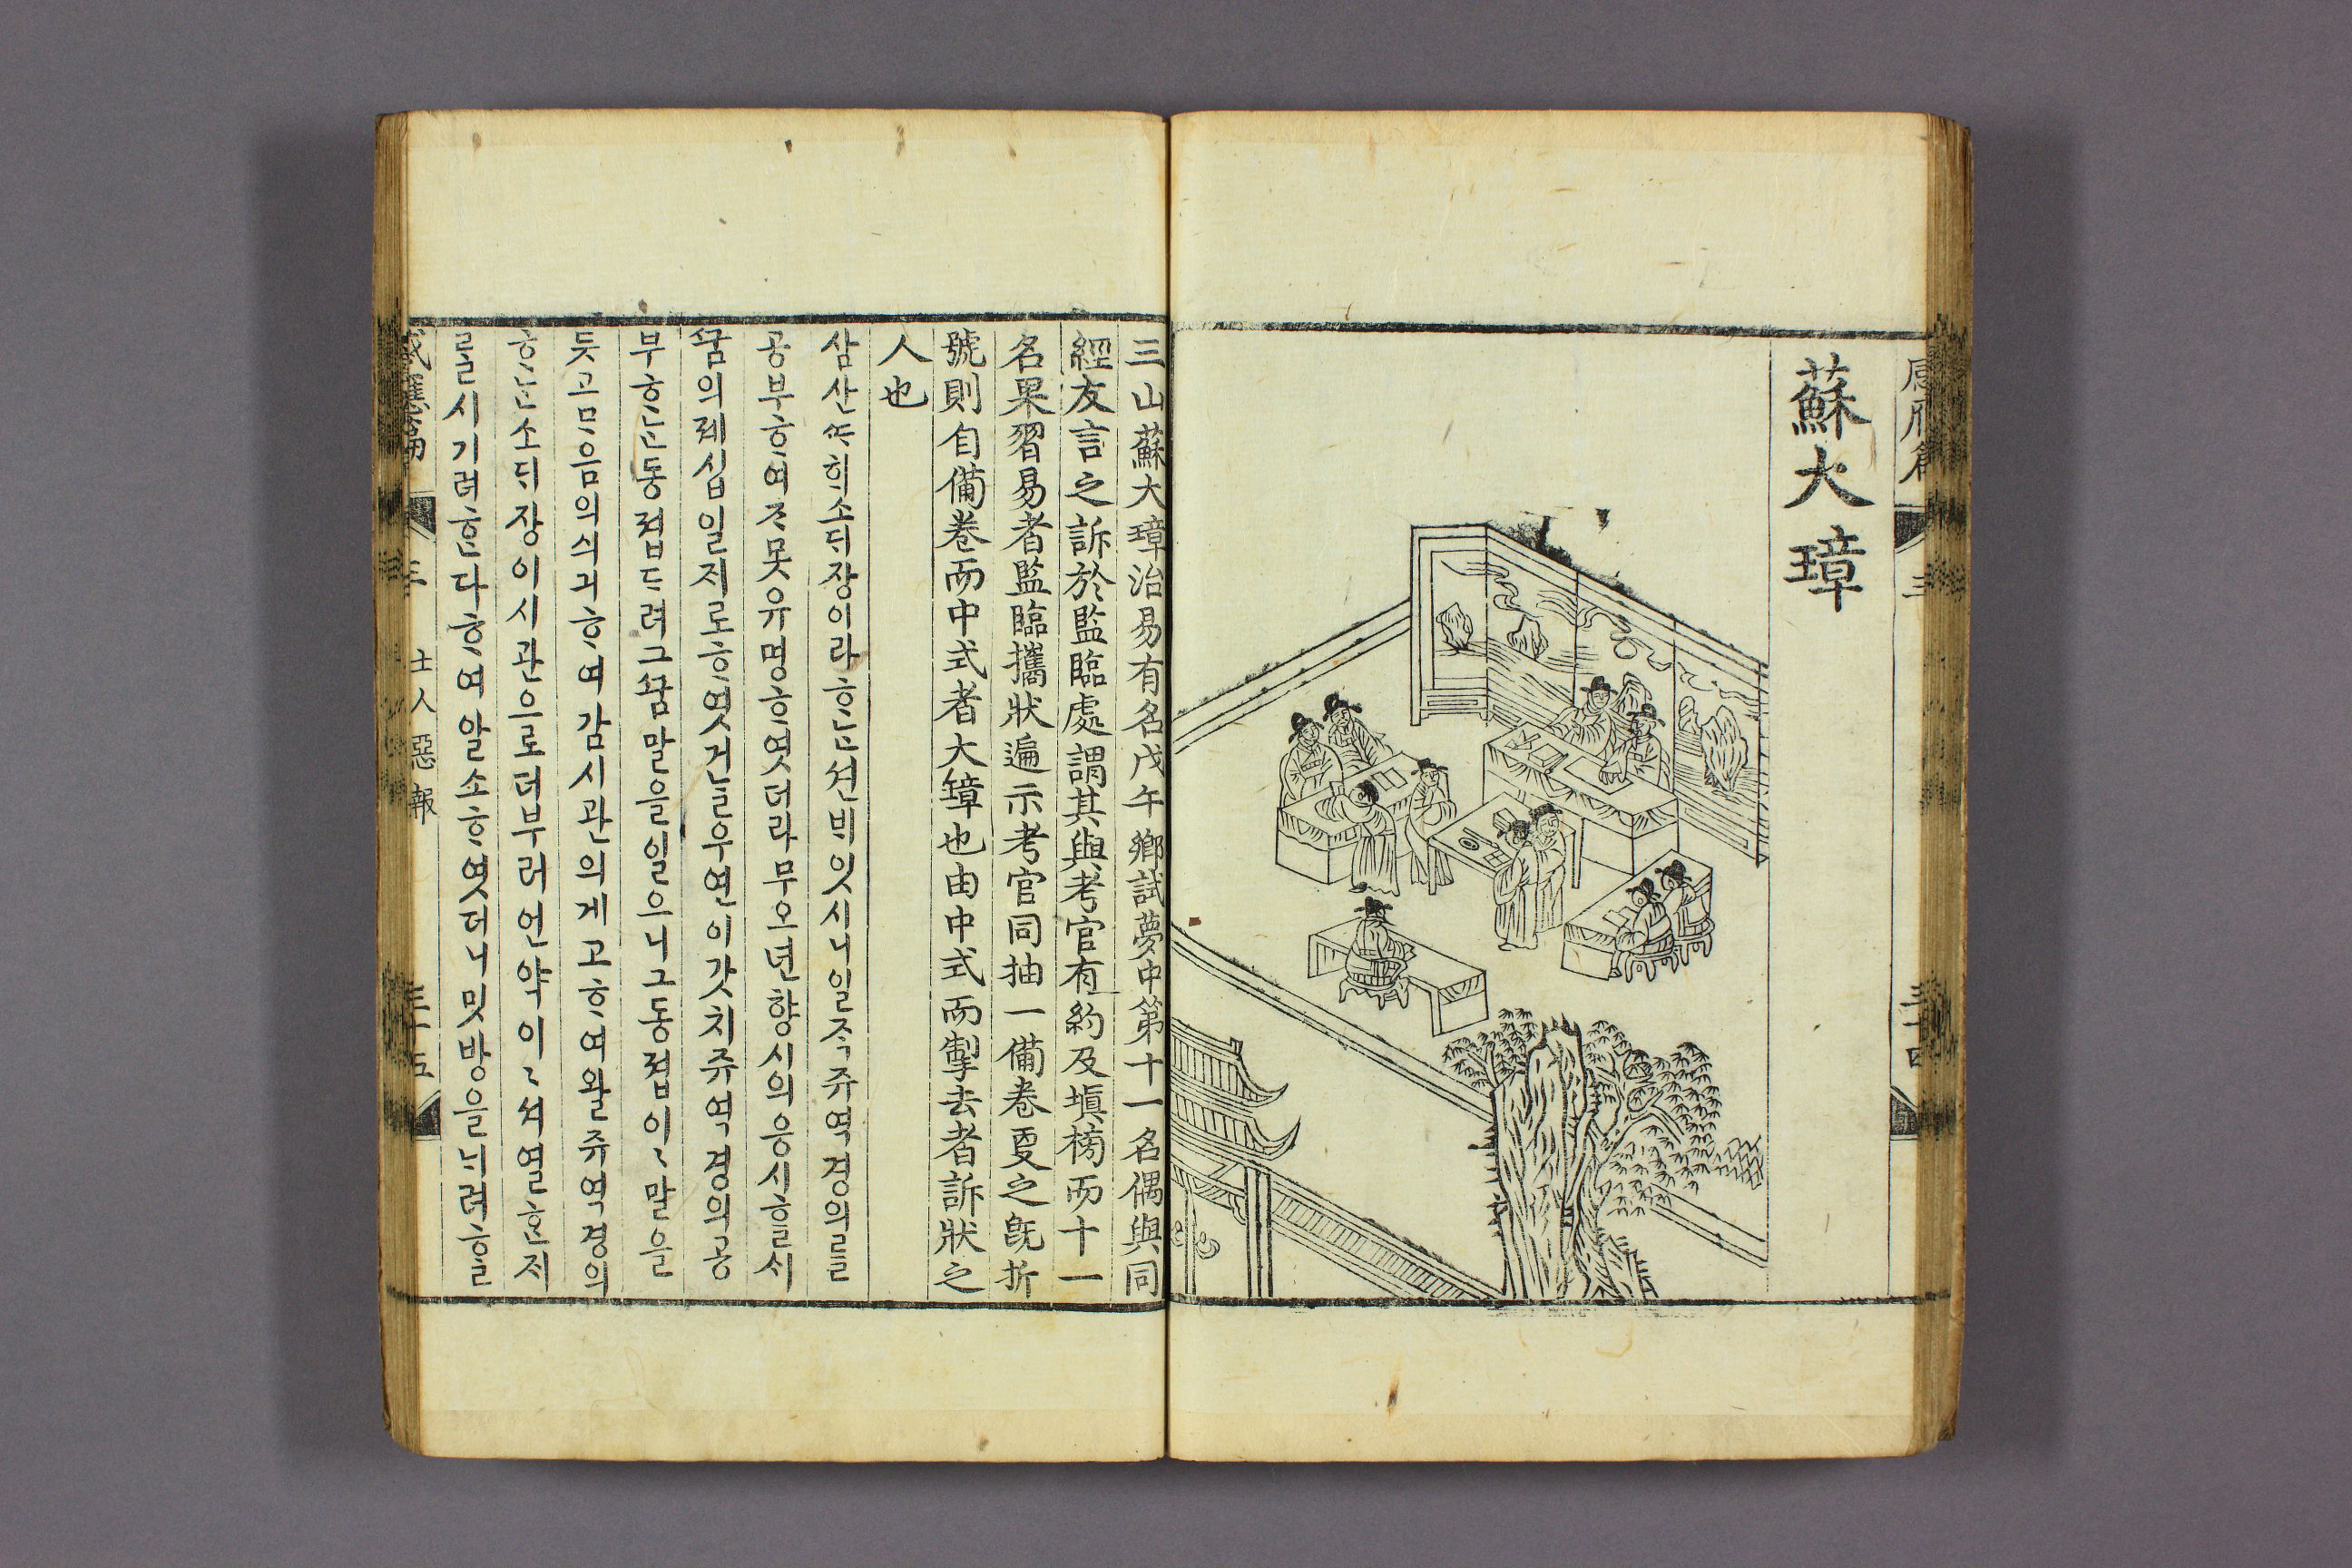 感應篇 三 三十四
蘇大璋
三山蘇大璋治易有名戊午鄉試夢中第十一名偶與同
經友言之訴於監臨處謂其與考官有約及塡榜而十一
名果習易者監臨攜狀遍示考官同抽一備卷更之旣折
號則自備卷而中式者大璋也由中式而掣去者訴狀之
人也
삼산ᄯᆞᄒᆡ소ᄃᆡ장이라ᄒᆞᄂᆞᆫ션ᄇᆡ잇시니일ᄌᆞᆨ쥬역경의ᄅᆞᆯ
공부ᄒᆞ여ᄌᆞ못유명ᄒᆞ엿더라무오년향시의응시ᄒᆞᆯᄉᆡ
ᄭᅮᆷ의졔십일ᄌᆡ로ᄒᆞ엿거ᄂᆞᆯ우연이갓치쥬역경의공
부ᄒᆞᄂᆞᆫ동졉ᄃᆞ려그ᄭᅮᆷ말을일으니그동졉이〻말을
듯고ᄆᆞ음의싀긔ᄒᆞ여감시관의게고ᄒᆞ여왈쥬역경의
ᄒᆞᄂᆞᆫ소ᄃᆡ장이시관으로더부러언약이〻셔열ᄒᆞᆫᄌᆡ
ᄅᆞᆯ시기려ᄒᆞᆫ다ᄒᆞ여알소ᄒᆞ엿더니밋방을ᄂᆡ려ᄒᆞᆯ
感應篇 三 士人惡報 三十五